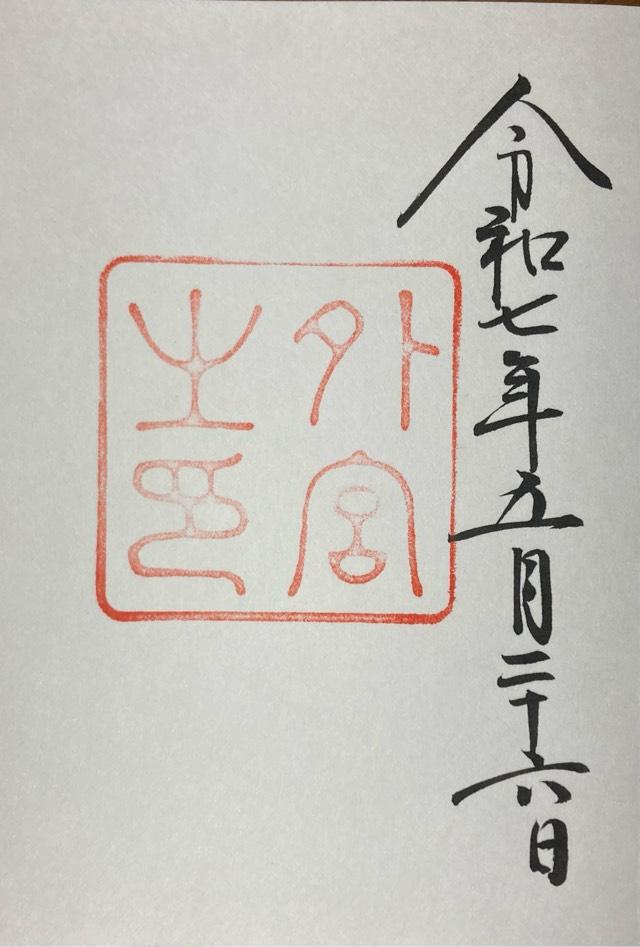 令和七年五月二十六日
外宮
之印